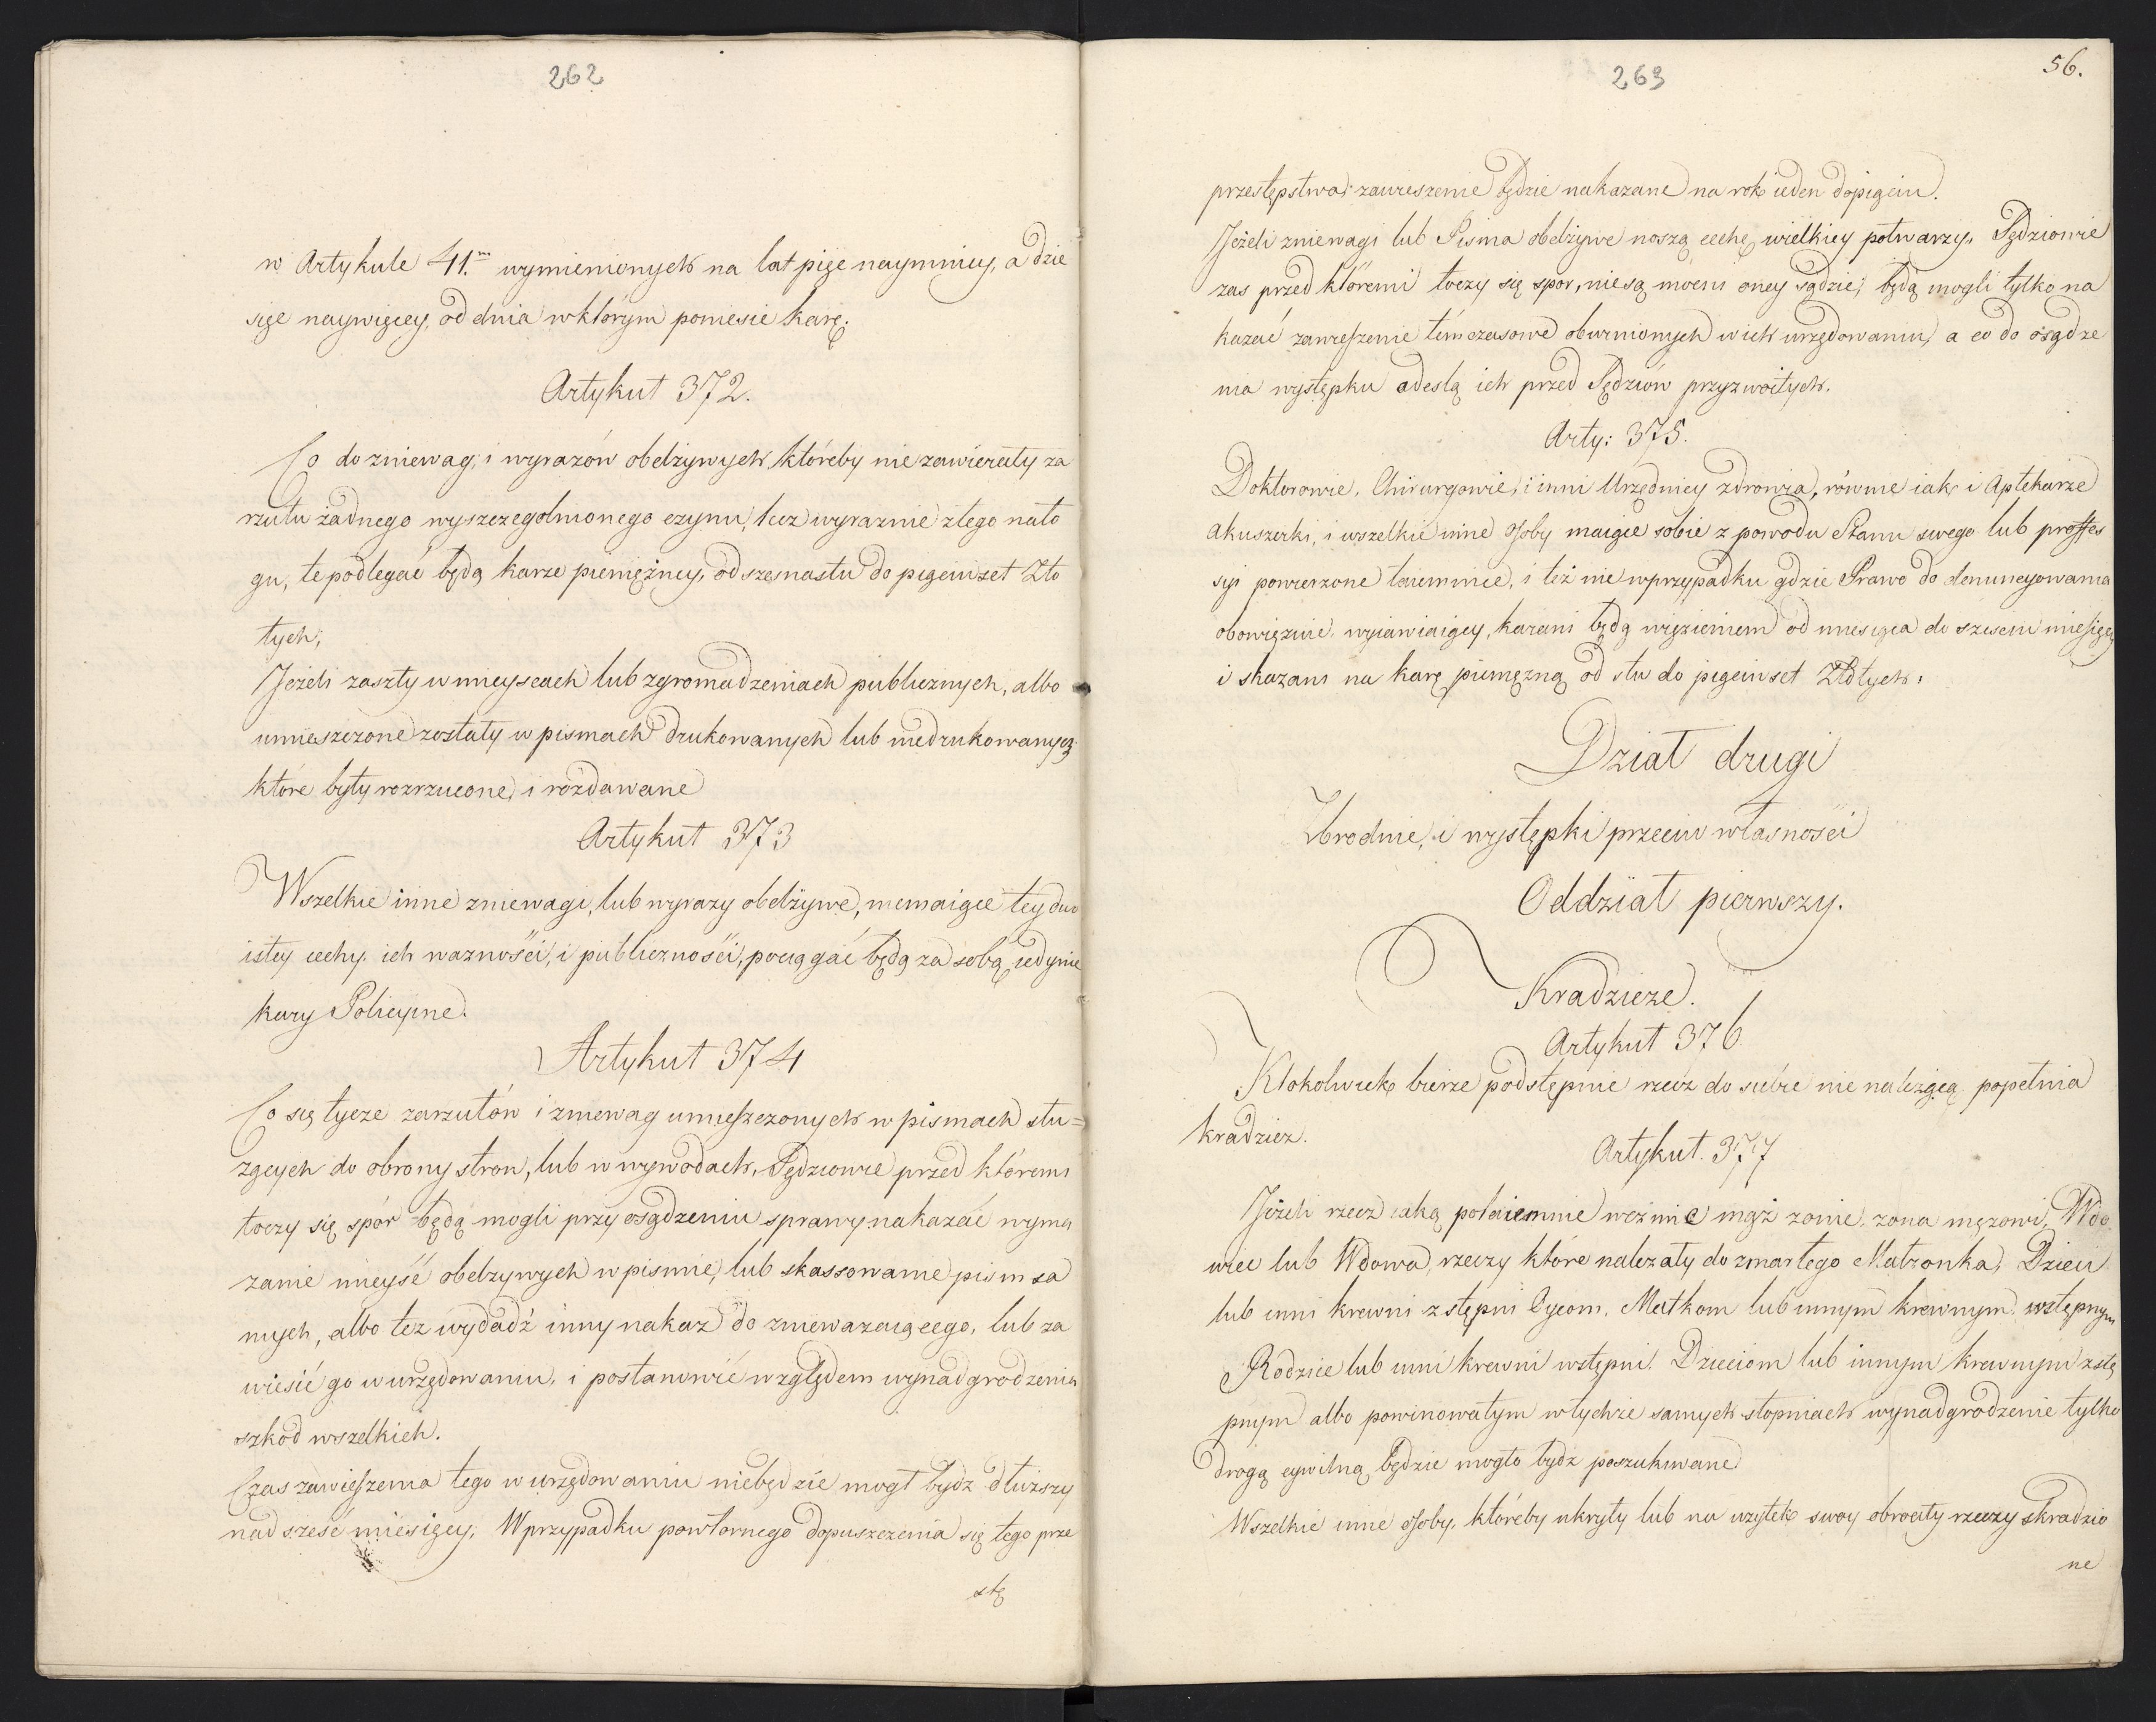 262
w Artykule 41.m wymienionych na lat pięć naymniey, a dzie
sięć naywięcey, od dnia w którym poniesie karę.
Artykuł 372.
Co do zniewag, i wyrazów obelżywych któreby nie zawierały za
rzutu żadnego wyszczególnionego czynu, lecz wyraźnie złego nało
gu, te podlegać będą karze pieniężney, od szesnastu do pięciuset Zło
tych,
Jeżeli zaszły w mieyscach lub zgromadzeniach publicznych, albo
umieszczone zostały w pismach drukowanych lub niedrukowanych
które były rozrzucone, i rozdawane
Artykuł 373
Wszelkie inne zniewagi, lub wyrazy obelżywe, niemaiące tey dwo
istey cechy ich ważności, i publiczności, pociągać będą za sobą iedynie
kary Policyine.
Artykuł 374
Co się tycze zarzutów i zniewag umieszczonych w pismach słu=
żących do obrony stron, lub w wywodach, Sędziowie przed któremi
toczy się spór będą mogli przy osądzeniu sprawy nakazać wyma
zanie mieysć obelżywych w pismie, lub skassowanie pism sa
mych, albo też wydadź inny nakaz do znieważaiącego, lub za
wiesić go w urzędowaniu, i postanowić względem wynadgrodzenia
szkod wszelkich.
Czas zawieszenia tego w urzędowaniu niebędzie mogł bydź dłuższy
nad sześć miesięcy; W przypadku powtornego dopuszczenia się tego prze
stę
263
56.
przestępstwa: zawieszenie będzie nakazane na rok ieden do pięciu.
Jeżeli zniewagi lub Pisma obelżywe noszą cechę wielkiey potwarzy, Sędziowie
zas przed któremi toczy się spor, nie są mocni oney sądzić, będą mogli tylko na
kazać zawieszenie tymczasowe obwinionych w ich urzędowaniu, a co do osądze
nia występku odeslą ich przed Sędziów przyzwoitych.
Arty: 375.
Doktorowie, Chirurgowie, i inni Urzędnicy zdrowia, równie iak i Aptekarze
akuszerki, i wszelkie inne osoby maiące sobie z powodu Stanu swego lub profes
syi powierzone taiemnice, i też nie w przypadku gdzie Prawo do denuncyowania
obowięzuie, wyiawiaiący, karani będą więzieniem od miesiąca do sześciu miesięcy
i skazani na karę pieniężną od stu do pięciuset Złotych.
Dział drugi
Zbrodnie, i występki przeciw własności
Oddział pierwszy.
Kradzieże.
Artykuł 376
Ktokolwiek bierze podstępnie rzecz do siebie nie należącą popełnia
kradzież.
Artykuł. 377
Jeżeli rzecz iaką potaiemnie weźmie mąż żonie, żona mężowi, Wdo
wiec lub Wdowa, rzeczy które należały do zmarłego Małżonka, Dzieci
lub inni krewni zstępni Oycom, Matkom lub innym krewnym wstępnym
Rodzice lub inni krewni wstępni, Dzieciom lub innym krewnym zstę
pnym albo powinowatym w tychże samych stopniach wynadgrodzenie tylko
drogą cywilną będzie mogło bydź poszukiwane
Wszelkie inne osoby, któreby ukryły lub na użytek swoy obrocity rzeczy skradzio
ne